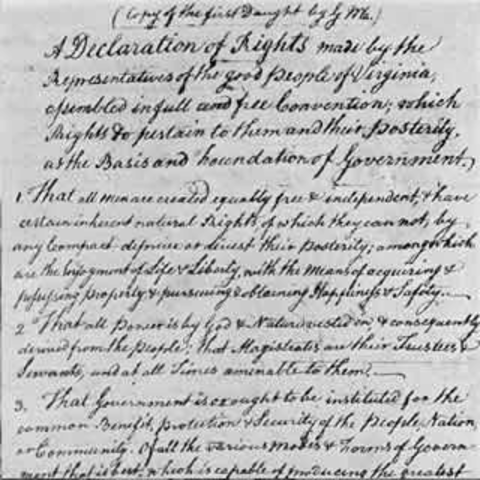 (Copy of the first Daught by G M.)
A Declaration of Rights made by the
Representatives of the good people of Virginia,
assembled in full and free Convention; which
Rights do pertain to them and their Posterity,
as the Basis and Foundation of Government.
1. That all men are created equally free & independent, & have
certain inherent natural Rights, of which they can not, by
any Compact, deprive or divest their Posterity; among which
are the Enjoyment of Life & Liberty, with the Means of acquiring &
possessing Property, & pursueing & obtaining Happiness & Safety.
2 That all Power is by God & Nature vested in, & consequently
derived from the People; that Magistrates are their Trustees &
Servants, and at all Times amenable to them.
3. That Government is or ought to be instituted for the
common Benefit, Protection & Security of the People, Nation,
or Community. Of all the various Modes & Forms of Govern-
ment that is best, which is capable of producing the greatest